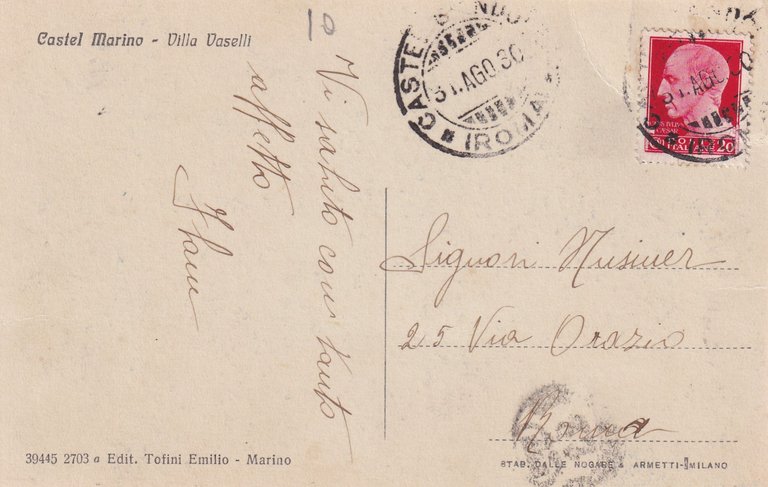 Castel Marino - Villa Vaselli
Vi saluto con tanto
affetto
CASTEL GANDOLFO
31.AGO.30
(ROMA)
IVLIVS
CAESAR
POSTE ITALIANE
20
Signori
25 Via Orazio
Roma
39445 2703 a Edit. Tofini Emilio - Marino
STAB. DALLE NOGARE & ARMETTI - MILANO